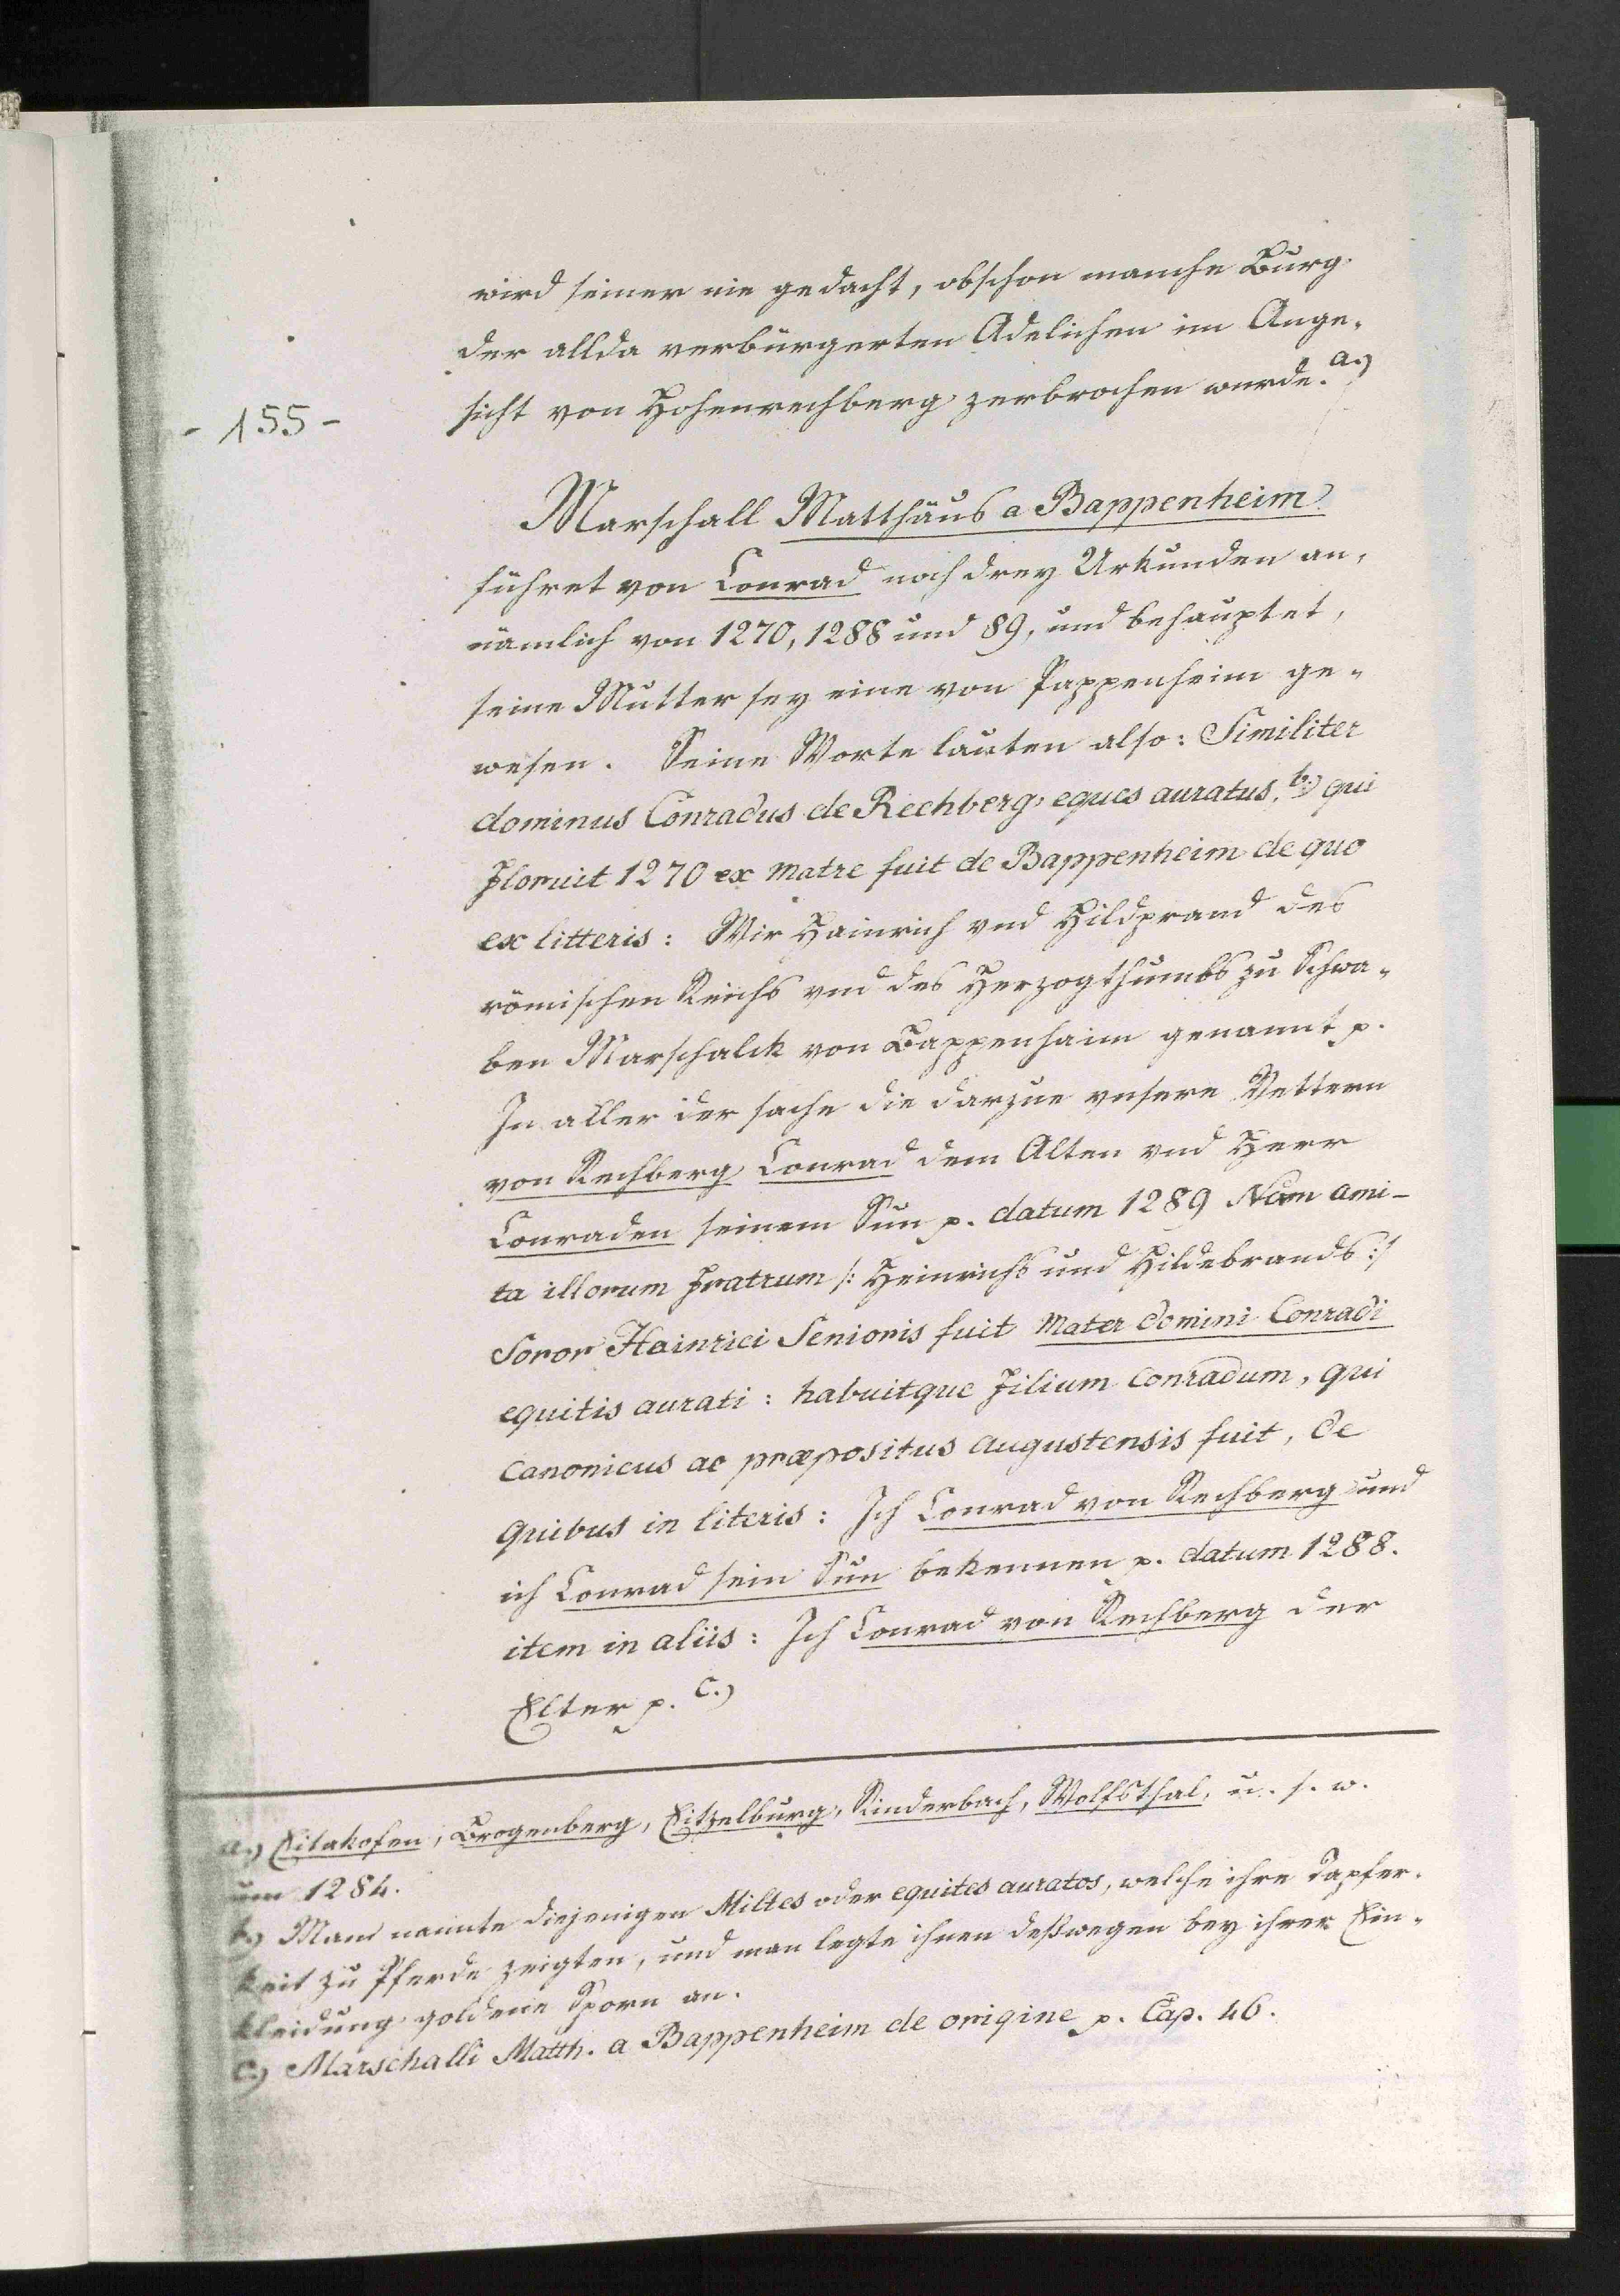 wird seiner nie gedacht, obschon manche Burg
der allda verbürgerten Adelichen im Ange-
sicht von Hohenrechberg zerbrochen wurde. a.)
- 155 -
Marschall Matthäus a Bappenheim
führet von Conrad noch drey Urkunden an,
nämlich von 1270, 1288 und 89, und behauptet,
seine Mutter sey eine von Pappenheim ge-
wesen. Seine Worte lauten also: Similiter
dominus Conradus de Rechberg, eques auratus, b.) qui
floruit 1270 ex matre fuit de Bappenheim de quo
ex litteris: Wir Hainrich vnd Hildprand des
römischen Reichs vnd des Herzogthumbs zu Schwa-
ben Marschalck von Bappenhaim genannt p.
In aller der sache die darzue vnsere Vettern
von Rechberg Conrad dem Alten vnd Herr
Conraden seinem Sun p. datum 1289 Nam ami-
ta illorum fratrum /: Heinrichs und Hildebrands :/
Soror Hainrici Senioris fuit Mater domini Conradi
equitis aurati: habuitque filium Conradum, qui
Canonicus ac præpositus augustensis fuit, de
quibus in literis: Ich Conrad von Rechberg und
ich Conrad sein Sun bekennen p. datum 1288.
item in aliis: Ich Conrad von Rechberg der
Elter p. c.)
a.) Eitakofen, Brogenberg, Eitzelburg, Rinderbach, Wolfsthal, u. s. w.
um 1284.
b.) Man nannte diejenigen Milites oder equites auratos, welche ihre Tapfer-
keit zu Pferde zeigten, und man legte ihnen deßwegen bey ihrer Ein-
kleidung goldene Sporn an.
c.) Marschalli Matth. a Bappenheim de origine p. Cap. 46.